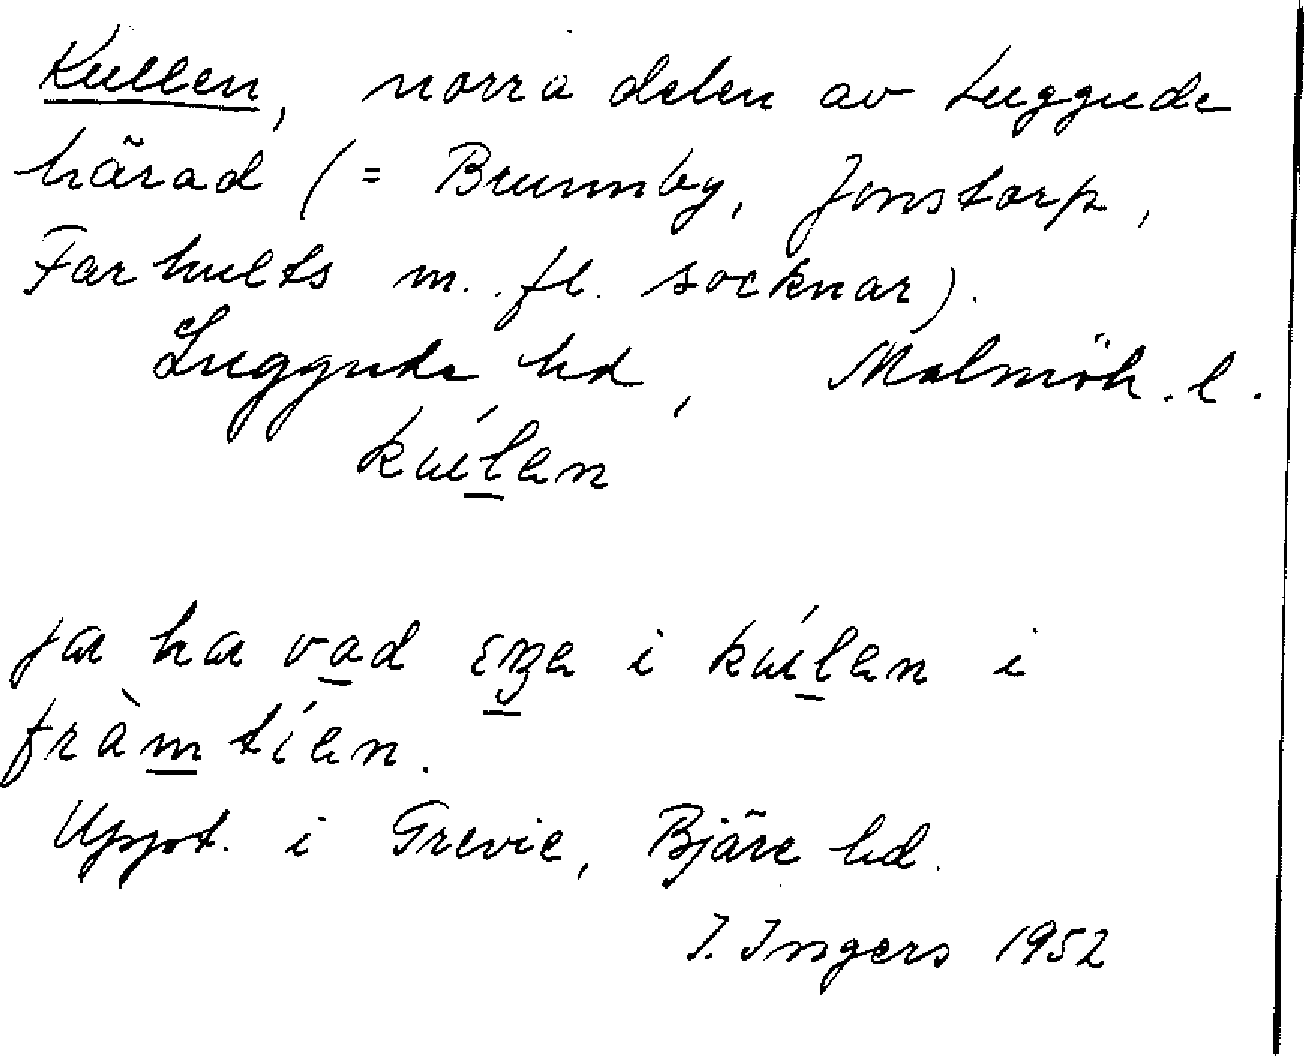 Kullen, norra delen av Luggude
härad (= Brunnby, Jonstorp,
Farhults m. fl. socknar).
Luggude hd, Malmöh. l.
kúl̲an
ja ha va̲d i kúl̲an i
fràm̲ tían.
Uppt. i Grevie, Bjäre hd.
I. Ingers 1952